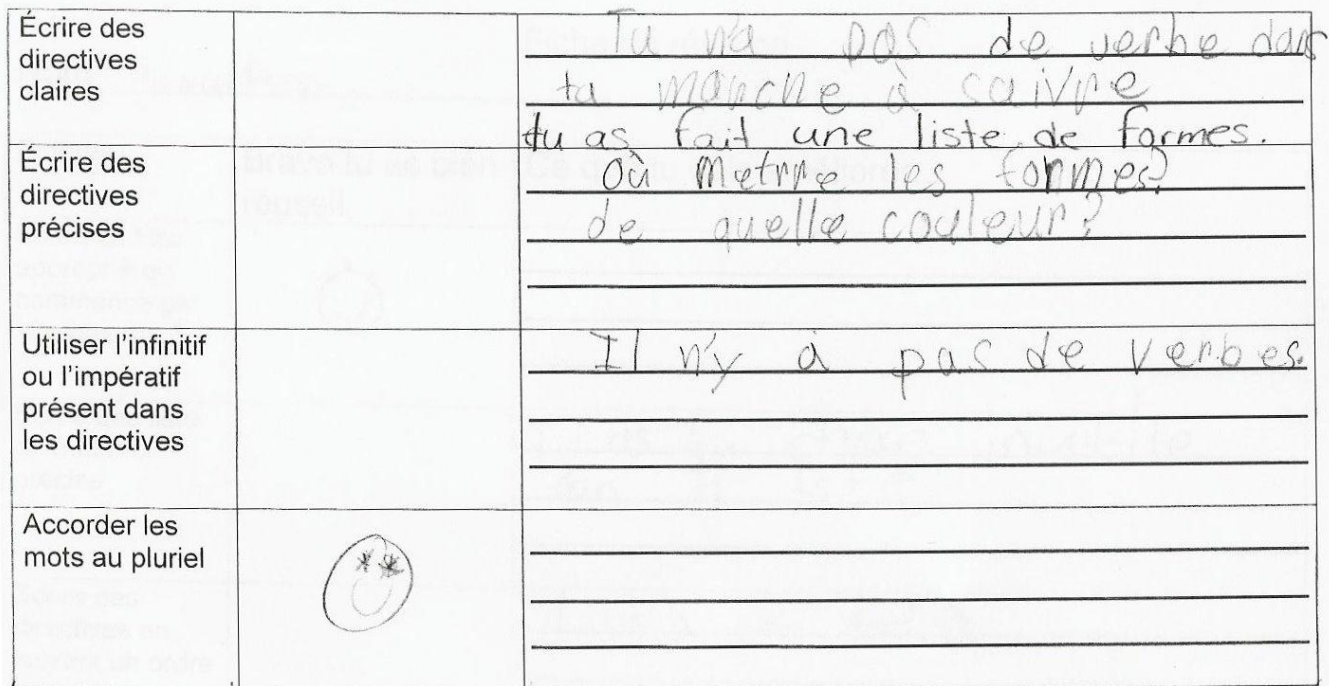 Écrire des
directives
claires
Tu na pas de verbe dans
ta marche à saivre
tu as fait une liste de formes.
Écrire des
directives
précises
Où metrre les formes?
de quelle couleur?
Utiliser l'infinitif
ou l'impératif
présent dans
les directives
Il n'y à pas de verbes.
Accorder les
mots au pluriel